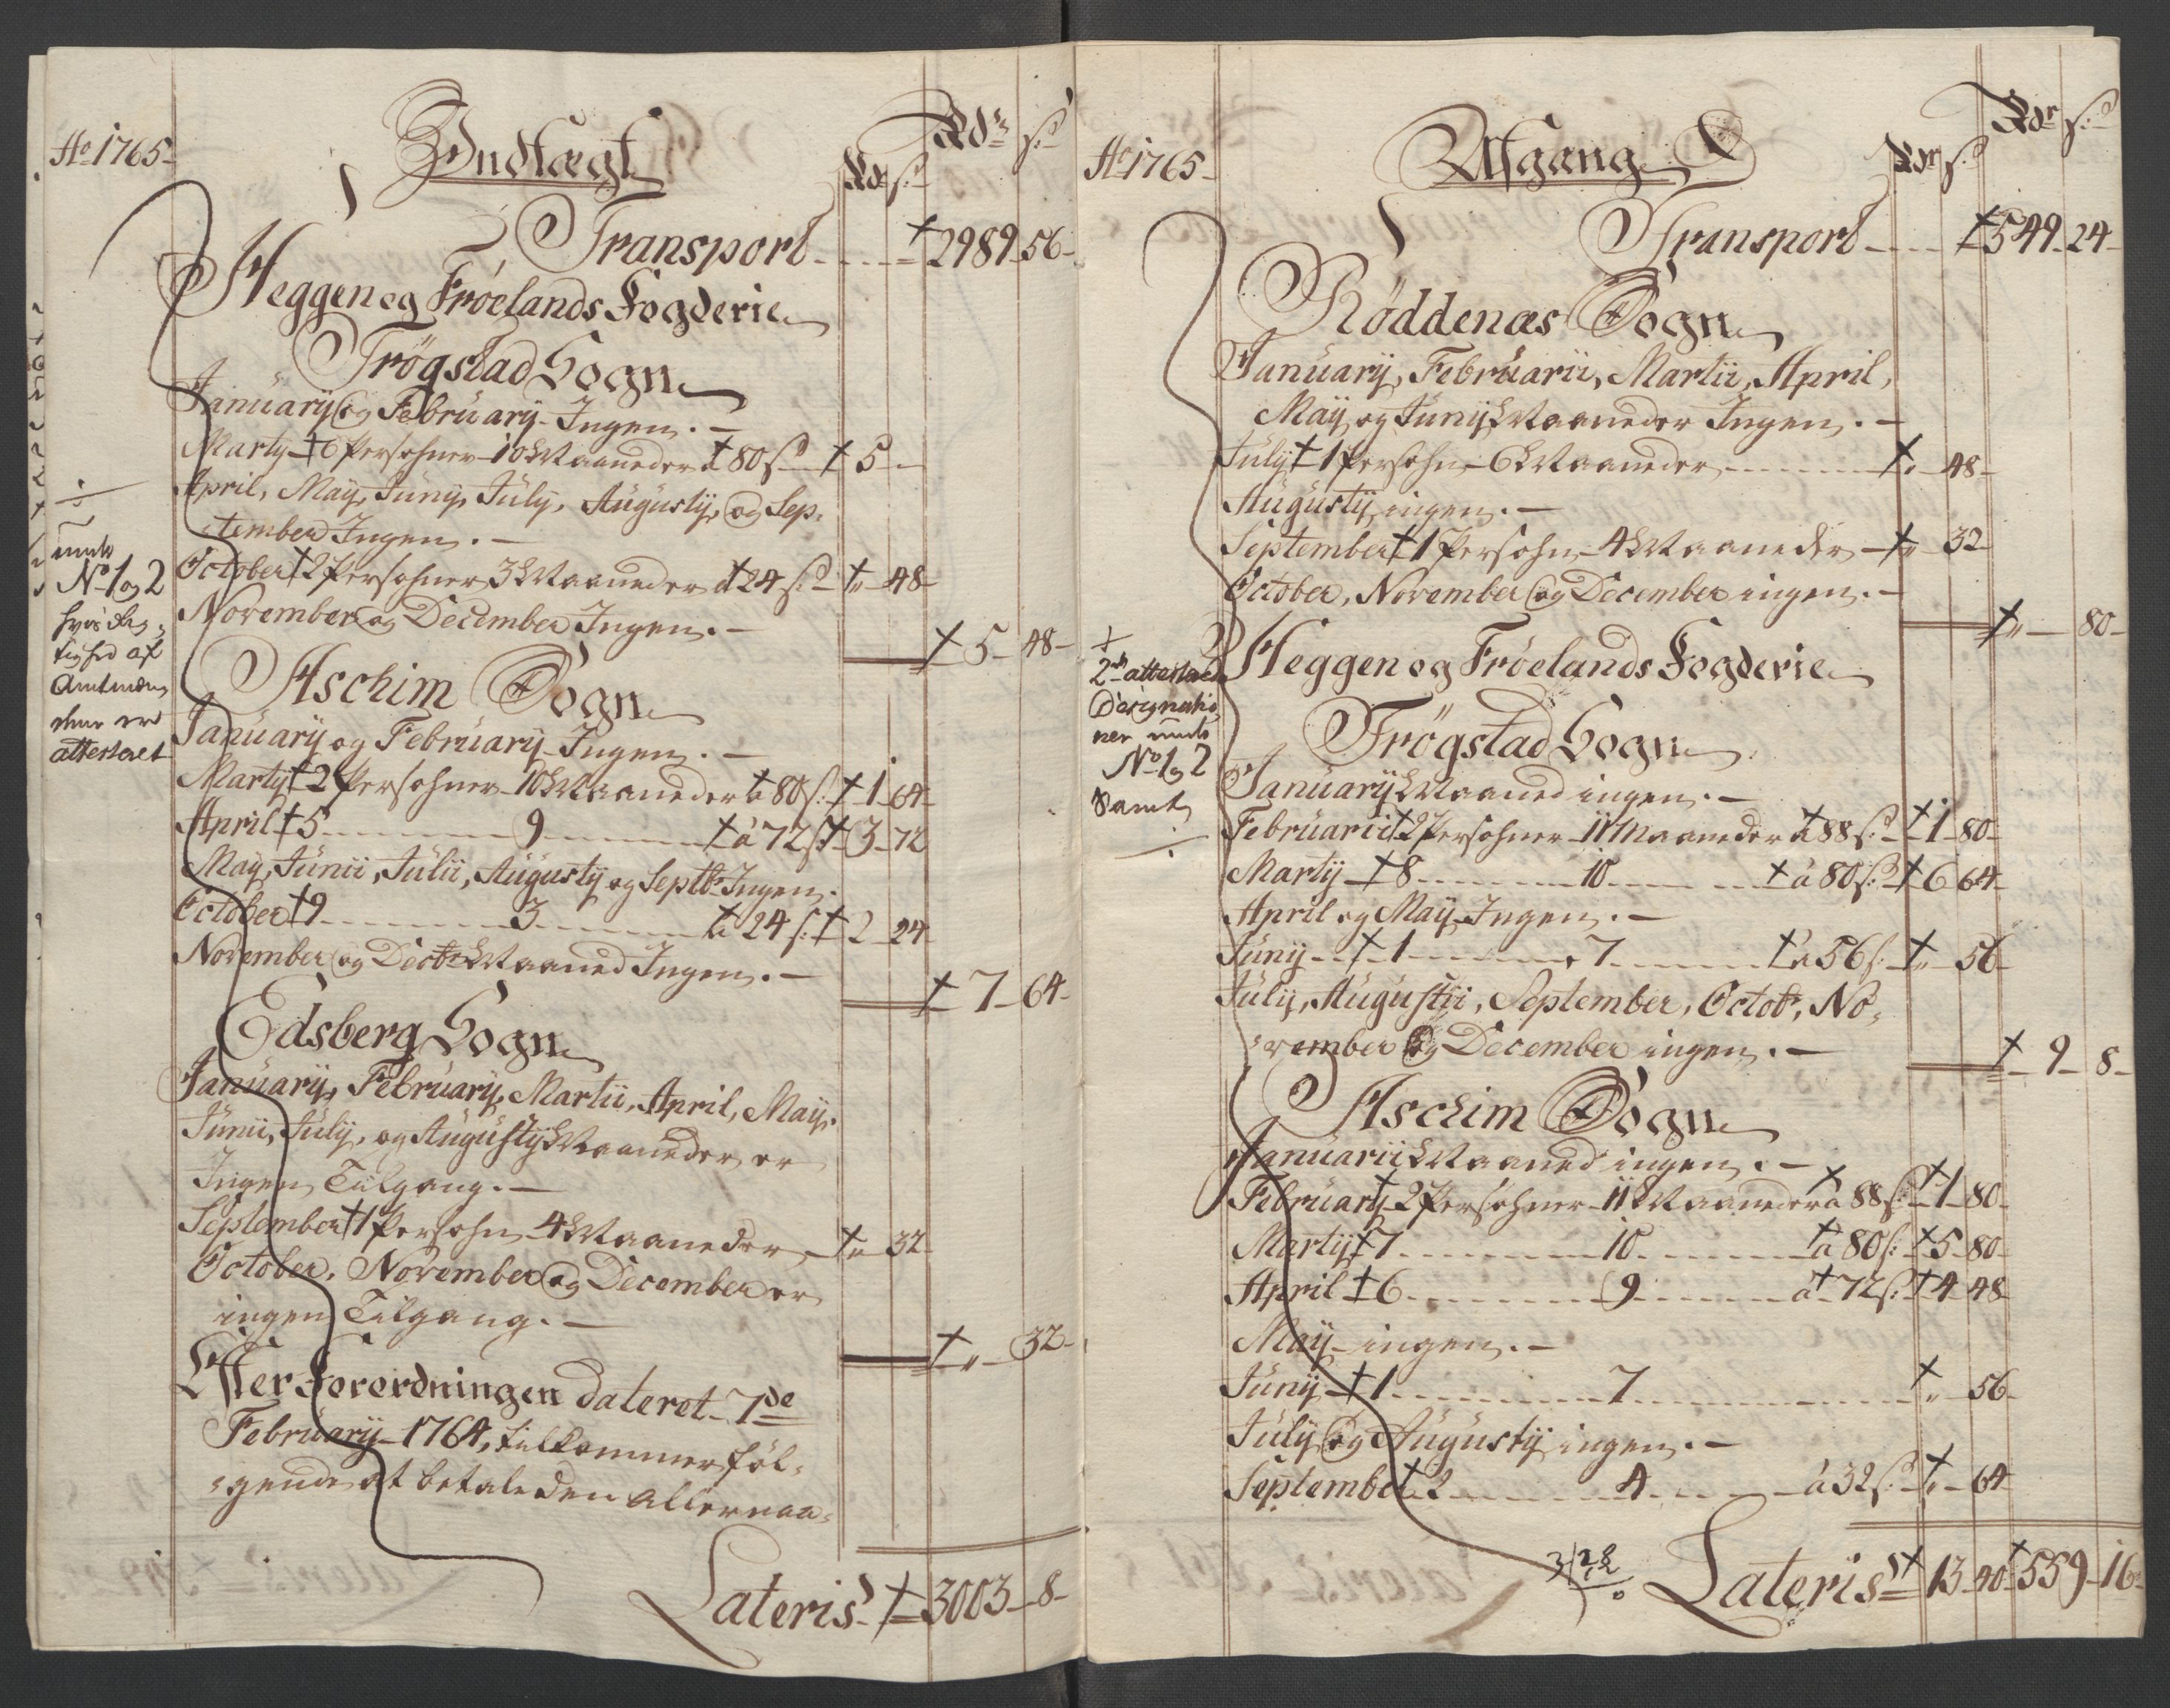 Ao 1765
Indtægt
Rdr s:
Rdr s:
Transport - 2989 - 56 -
Heggen og Fröelands Fogderie
Trögstad Sogn
Januarij og Februarij Ingen . -
Martij - 6 Persohner - 10 Maaneder à 80 s: - 5 -
April, Maij, Junij, Julij, Augustij, og Sep,
tember Ingen . -
October 2 Persohner 3 Maaneder à 24 s: - " - 48 -
November og December Ingen . -
5 - 48 -
Aschim Sogn
Januarij og Februarij Ingen . -
Martij 2 Persohner - 10 Maaneder à 80 s: - 1 - 64 -
April 5 - 9 - à 72 s: - 3 - 72
Maij, Junii, Julii, Augustij og Septbr Ingen .
October 9 - 3 - à 24 s: 2 - 24 -
November og Decbr Maaned Ingen . -
7 - 64 -
Edsberg Sogn
Januarij, Februarij, Martii, April, Maij,
Junii, Julij, og Augustij Maaneder er
Ingen Tilgang . -
September 1 Persohn - 4 Maaneder - " - 32 -
October, November og December er
ingen Tilgang . -
" - 32 -
Efter Forordningen dateret 7de
Februarij 1764, tilkommer föl,
gende at betale den allernaa,
Lateris - 3003 - 8 -
No 1 og 2
hvis
tighed af
Amtman
attesteret
Ao 1765
Afgang
Rdr s:
Rdr s:
Transport - 549 - 24 -
Röddenæs Sogn
Januarij, Februarii, Martii, April,
Maij og Junij Maaneder Ingen . -
Julij 1 Persohn - 6 Maaneder - " - 48 -
Augustij ingen . -
September 1 Persohn - 4 Maaneder - " - 32 -
October, November og December ingen . -
" - 80 -
Heggen og Fröelands Fogderie
Trögstad Sogn
Januarij Maaned ingen . -
Februarii 2 Persohner - 11 Maaneder à 88 s: - 1 - 80 -
Martij - 8 - 10 - à 80 s: - 6 64 -
April og Maij Ingen . -
Junij - 1 - 7 - à 56 s: - " - 56 -
Julij, Augustii, September, Octobr, No,
vember og December ingen . -
9 - 8 -
Aschim Sogn
Januarii Maaned ingen . -
Februarij 2 Persohner - 11 Maaneder à 88 s: - 1 - 80 -
Martij 7 - 10 - à 80 s: - 5 - 80 -
April 6 - 9 - à 72 s: - 4 - 48 -
Maij - ingen . -
Junij - 1 - 7 - " - 56 -
Julij og Augustij ingen . -
September 2 - 4 - à 32 s: - " - 64 -
Lateris - 13 - 40 - 559 - 16 -
2de attesterede
Designatio,
ner
No 1 og 2
Samt